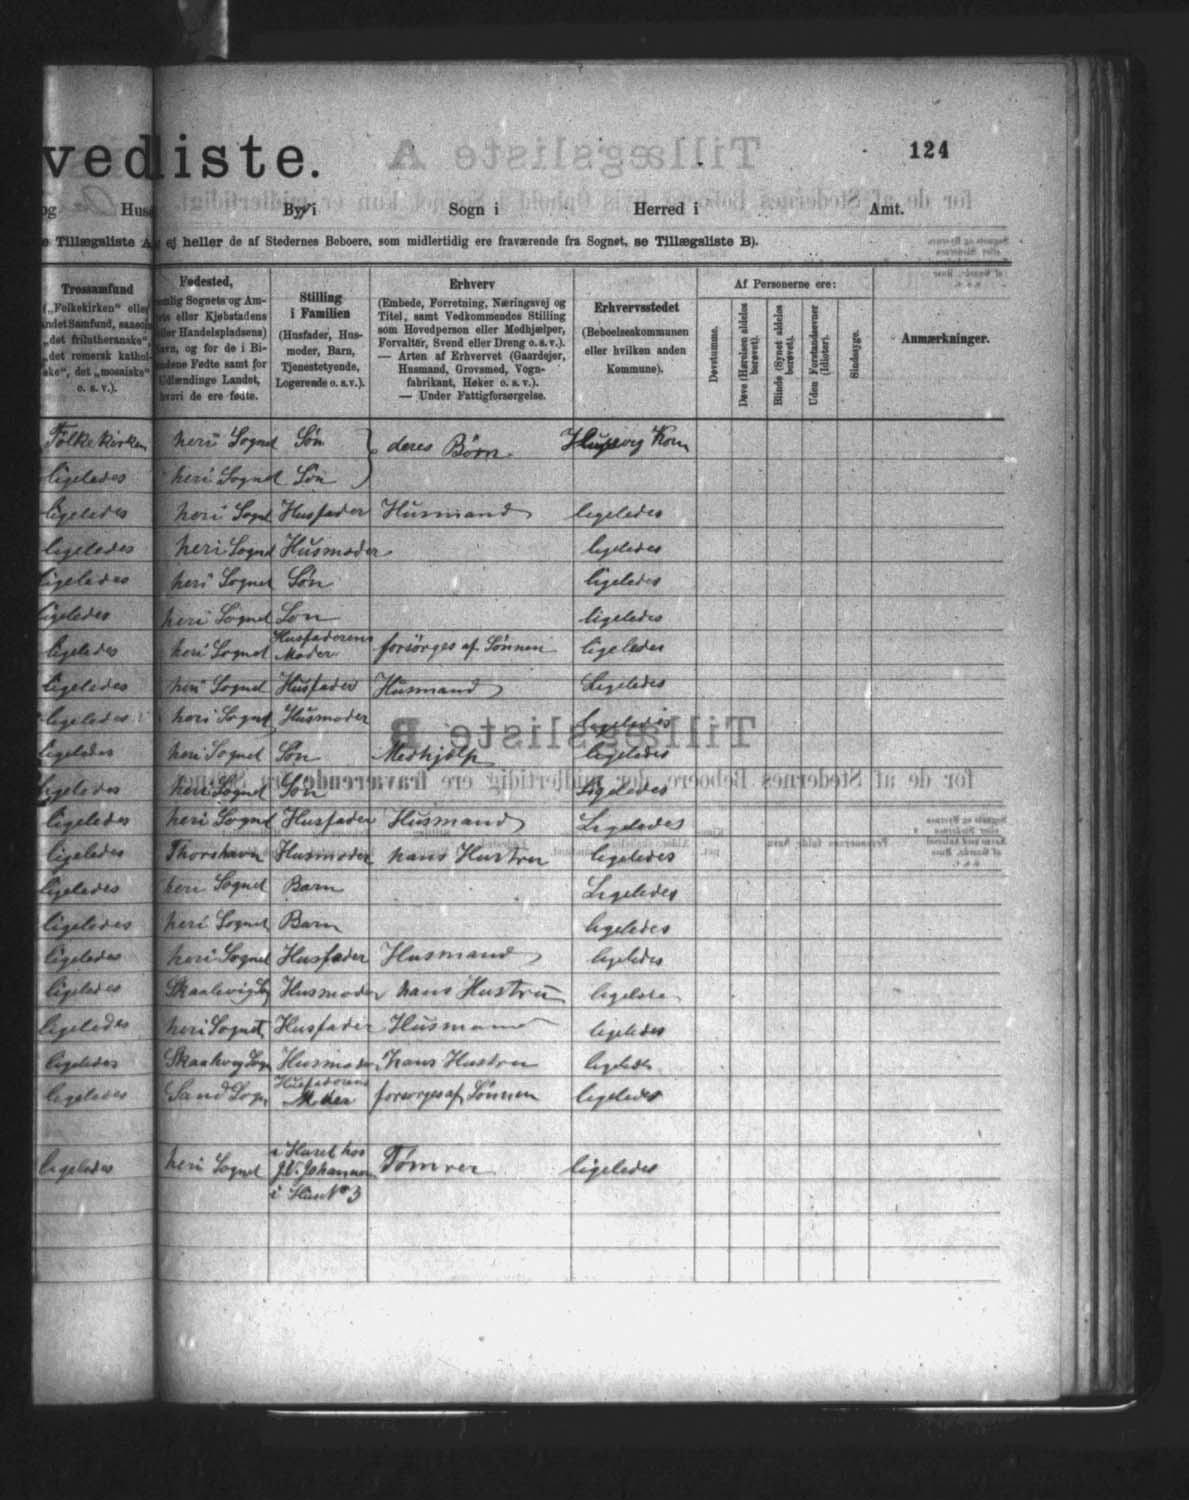 vediste.
124
og Huse By i Sogn i Herred i Amt.
e Tillægsliste A, ej heller de af Stedernes Beboere, som midlertidig ere fraværende fra Sognet, se Tillægsliste B).
Trossamfund
(„Folkekirken" eller
andet Samfund, saasom
„det frilutheranske",
„det romersk kathol-
ske", det „mosaiske"
o. s. v.).
Fødested,
nemlig Sognets og Am-
tets eller Kjøbstadens
eller Handelspladsens)
Navn, og for de i Bi-
landene Fødte samt for
Udlændinge Landet,
hvori de ere fødte.
Stilling
i Familien
(Husfader, Hus-
moder, Barn,
Tjenestetyende,
Logerende o. s. v.).
Erhverv
(Embede, Forretning, Næringsvej og
Titel, samt Vedkommendes Stilling
som Hovedperson eller Medhjælper,
Forvalter, Svend eller Dreng o. s. v.).
— Arten af Erhvervet (Gaardejer,
Husmand, Grovsmed, Vogn-
fabrikant, Høker o. s. v.).
— Under Fattigforsørgelse.
Erhvervsstedet
(Beboelseskommunen
eller hvilken anden
Kommune).
Af Personerne ere:
Døvstumme.
Døve (Hørelsen aldeles
berøvet).
Blinde (Synet aldeles
berøvet).
Uden Forstandsevner
(Idioter).
Sindssyge.
Anmærkninger.
Folkekirken heri Sognet Søn } deres Børn Kom
ligeledes heri Sognet Søn
ligeledes heri Sognet Husfader Husmand ligeledes
ligeledes heri Sognet Husmoder ligeledes
ligeledes heri Sognet Søn ligeledes
ligeledes heri Sognet Søn ligeledes
ligeledes heri Sognet Husfaderens Moder forsørges af Sønnen ligeledes
ligeledes heri Sognet Husfader Husmand Ligeledes
ligeledes heri Sognet Husmoder ligeledes
ligeledes heri Sognet Søn Medhjælp ligeledes
ligeledes heri Sognet Søn Ligeledes
ligeledes heri Sognet Husfader Husmand Ligeledes
ligeledes Thorshavn Husmoder hans Hustru ligeledes
ligeledes heri Sognet Barn Ligeledes
ligeledes heri Sognet Barn ligeledes
ligeledes heri Sognet Husfader Husmand ligeledes
ligeledes Skaalevig Sg Husmoder hans Hustru ligeledes
ligeledes heri Sognet Husfader Husmand ligeledes
ligeledes Skaalevig Sogn Husmoder hans Hustru ligeledes
ligeledes Sand Sogn Husfaderens Moder forsørges af Sønnen ligeledes
ligeledes heri Sognet i Huset hos Tømrer ligeledes
J. V. Johannesen
i Hus No 3